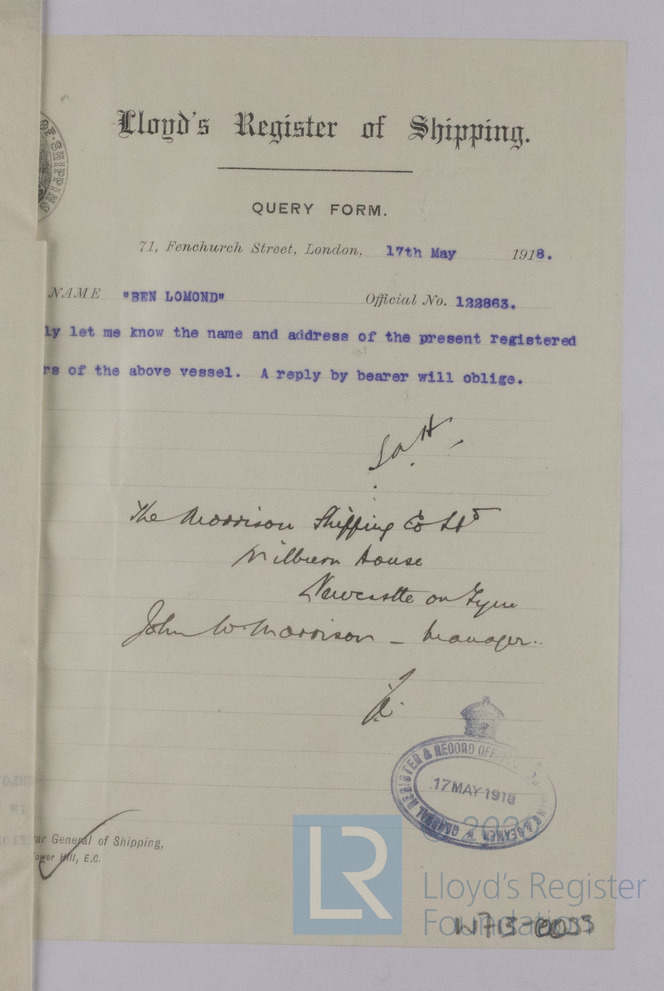 Lloyd's Register of Shipping.
QUERY FORM.
71, Fenchurch Street, London, 17th May 1918.
NAME "BEN LOMOND" Official No. 122863.
ly let me know the name and address of the present registered
rs of the above vessel. A reply by bearer will oblige.
The Morrison Shipping Co Ltd
Milburn House
Newcastle on Tyne
John W Morrison - Manager.
REGISTER & RECORD OFF
17 MAY 1918
& SEAMEN GENERAL
ar General of Shipping,
ower Hill, E.C.
LR
Lloyd's Register
Foundation
W713-0035
OF SHIPPING